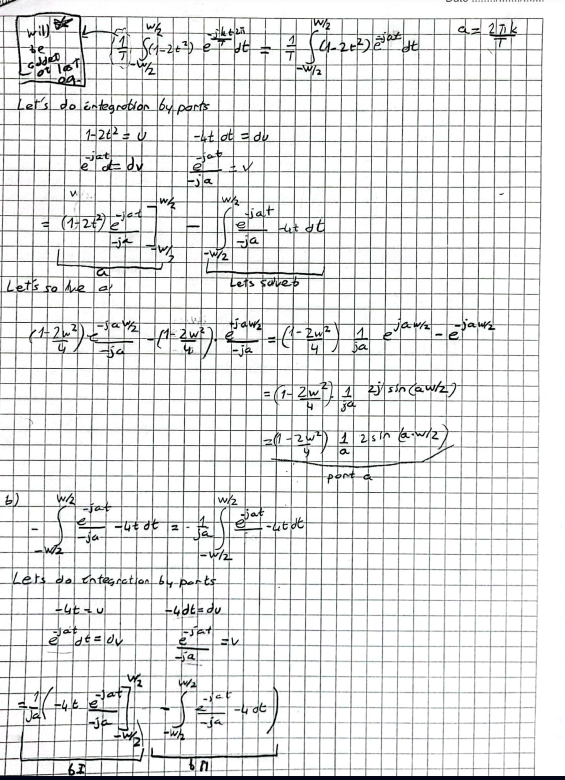 Date
will be added at last pg.
1/T ∫_{-w/2}^{w/2} (1-2t²) e^{-jkt2π/T} dt = 1/T ∫_{-w/2}^{w/2} (1-2t²) e^{-jat} dt
a = 2πk/T
Let's do integration by parts
1-2t² = u    -4t dt = du
e^{-jat} dt = dv    e^{-jat}/-ja = v
= (1-2t²) e^{-jat}/-ja ]_{-w/2}^{w/2} - ∫_{-w/2}^{w/2} e^{-jat}/-ja -4t dt
a    Lets solve b
Let's solve a
(1-2w²/4) · e^{-jaw/2}/-ja - (1-2w²/4) · e^{jaw/2}/-ja = (1-2w²/4) 1/ja e^{jaw/2} - e^{-jaw/2}
= (1-2w²/4) · 1/ja 2j sin(aw/2)
= (1-2w²/4) 1/a 2 sin(a·w/2)
part a
b)
- ∫_{-w/2}^{w/2} e^{-jat}/-ja -4t dt = - 1/ja ∫_{-w/2}^{w/2} e^{-jat} -4t dt
Lets do integration by parts
-4t = u    -4dt = du
e^{-jat} dt = dv    e^{-jat}/-ja = v
= 1/ja ( -4t e^{-jat}/-ja ]_{-w/2}^{w/2} - ∫_{-w/2}^{w/2} e^{-jat}/-ja -4 dt )
bI    bII